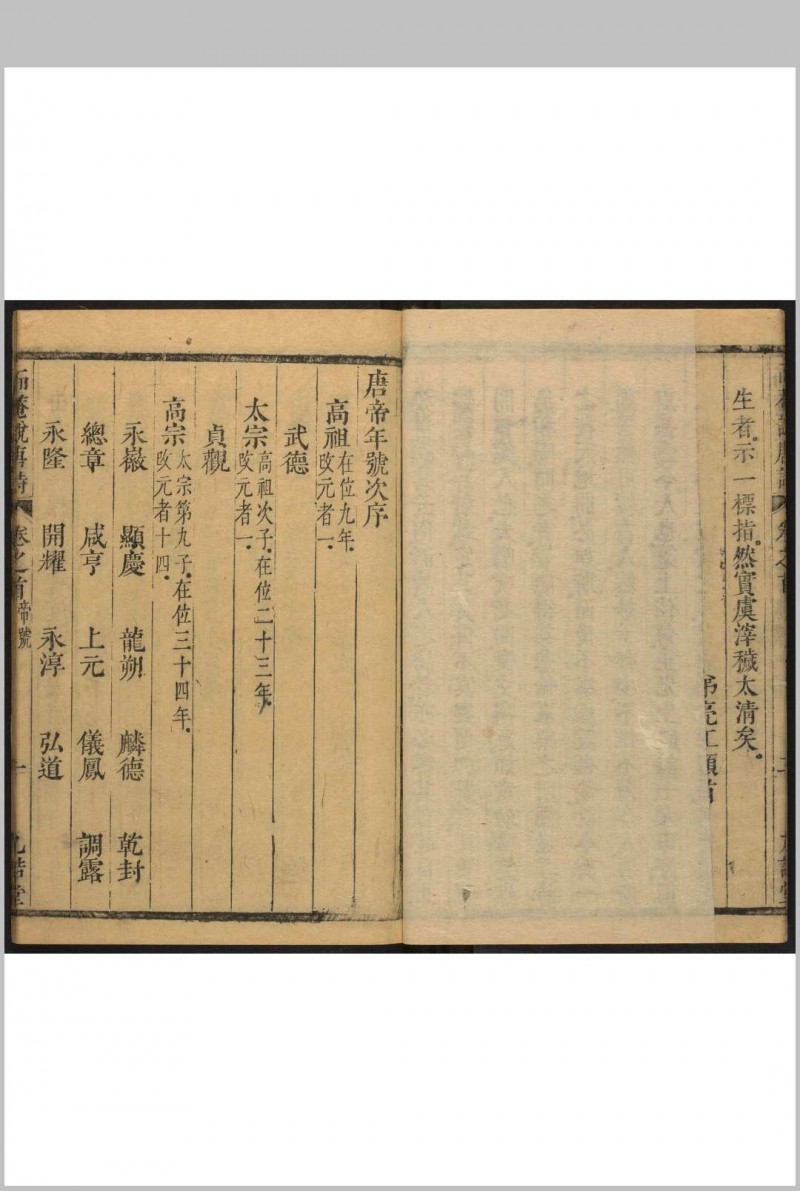 生者示一標指然實虞滓穢太清矣
唐帝年號次序
高祖在位九年
改元者一
武德
太宗高祖次子在位二十三年
改元者一
貞觀
高宗太宗第九子在位三十四年
改元者十四
永徽 顯慶 龍朔 麟德 乾封
總章 咸亨 上元 儀鳳 調露
永隆 開耀 永淳 弘道
而菴說唐詩 卷之首 帝號 一 九誥堂